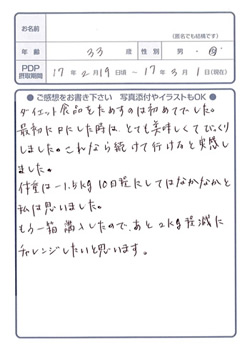 お名前
(匿名でも結構です)
年 齢 33 歳 性 別 男・女
PDP 摂取期間 17 年 2 月 19 日頃 ~ 17 年 3 月 1 (現在)
● ご感想をお書き下さい 写真添付やイラストもOK ●
ダイエット食品をためすのは初めてでした。
最初に口にした時は、とても美味しくてびっくり
しました。これなら続けて行けると実感し
ました。
体重は-1.5kg 10日程にしてはなかなかと
私は思いました。
もう一箱購入したので、あと2kg程減に
チャレンジしたいと思います。